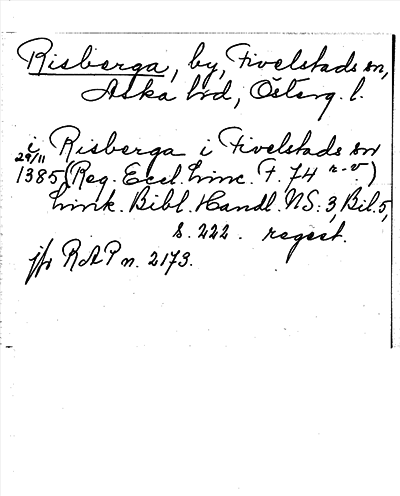 Risberga, by, Fivelstads sn,
Aska hd, Österg. l.
i Risberga i Fivelstads sn
29/11 1385 (Reg. Eccl. Linc. F. 74 r-v)
Link. Bibl. Handl. NS: 3, Bil. 5,
s. 222. regest.
jfr RAP n. 2173.